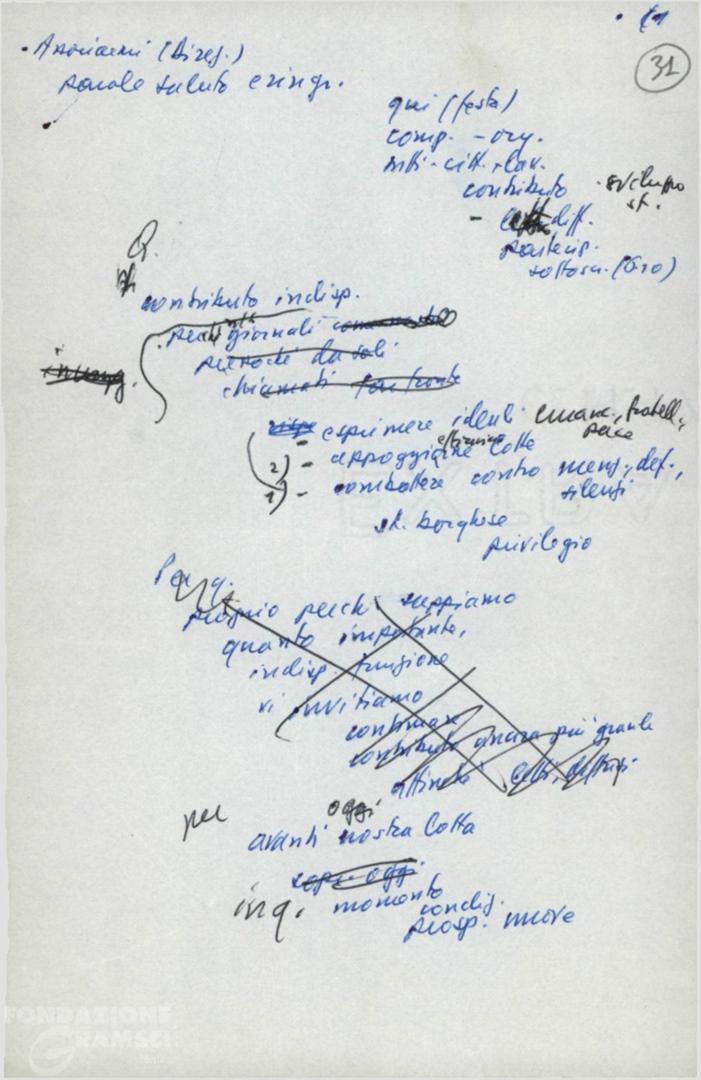 31
(Direz.)
parole saluto e ringr.
qui (festa)
comp. - org.
citt. lav.
contributo · sviluppo
st.
- diff.
partecip.
sottoscr. (Oro)
Q.
contributo indisp.
perché giornali
perché da soli
chiamati fronte
- esprimere ideali emanc., fratell.,
pace
2) - appoggiare lotte
1) - combattere contro menz., def.,
silenzi
st. borghese
privilegio
Per q.
proprio perché sappiamo
quanto importante,
indisp. funzione
vi invitiamo
continuare
contributo ancora più grande
affinché
per oggi
avanti nostra lotta
oggi
in q. momento
condiz.
prosp. nuove
FONDAZIONE
GRAMSCI